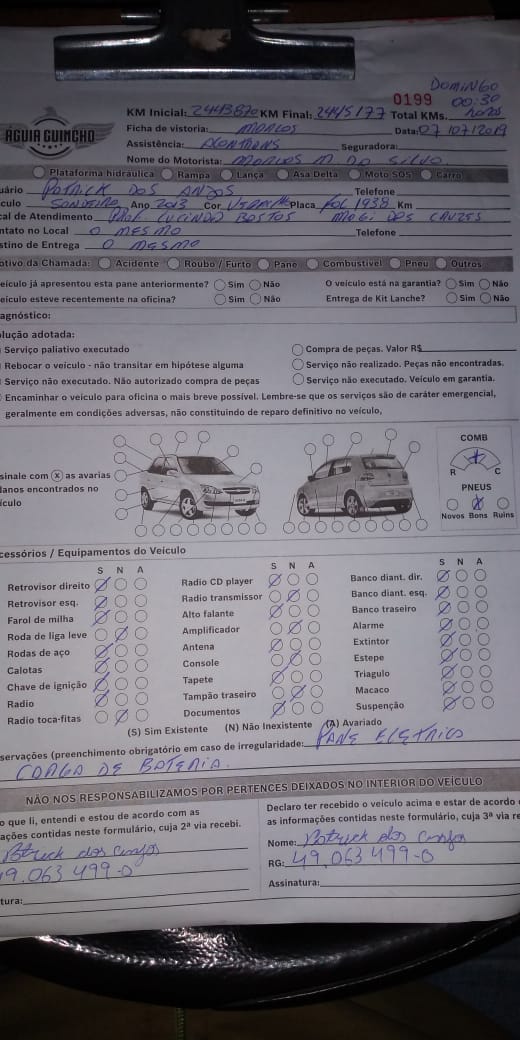 DOMINGO
0199 00:30
ÁGUIA GUINCHO
KM Inicial: 2443870 KM Final: 2445177 Total KMs.
Ficha de vistoria: MARCOS Data: 07/07/2019
Assistência: Seguradora:
Nome do Motorista: MARCOS M. DA SILVA
Plataforma hidráulica Rampa Lança Asa Delta Moto SOS Carro
uário PATRICK DOS ANJOS Telefone
culo SANDEIRO Ano 2013 Cor Placa 1938 Km
cal de Atendimento PROF. LUCINDA BASTOS MOGI DAS CRUZES
ntato no Local O MESMO Telefone
stino de Entrega O MESMO
otivo da Chamada: Acidente Roubo / Furto Pane Combustível Pneu Outros
eículo já apresentou esta pane anteriormente? Sim Não O veículo está na garantia? Sim Não
eículo esteve recentemente na oficina? Sim Não Entrega de Kit Lanche? Sim Não
agnóstico:
olução adotada:
Serviço paliativo executado Compra de peças. Valor R$
Rebocar o veículo - não transitar em hipótese alguma Serviço não realizado. Peças não encontradas.
Serviço não executado. Não autorizado compra de peças Serviço não executado. Veículo em garantia.
Encaminhar o veículo para oficina o mais breve possível. Lembre-se que os serviços são de caráter emergencial,
geralmente em condições adversas, não constituindo de reparo definitivo no veículo,
COMB
R C
sinale com X as avarias
danos encontrados no
ículo
PNEUS
Novos Bons Ruins
cessórios / Equipamentos do Veículo
S N A S N A S N A
Retrovisor direito Radio CD player Banco diant. dir.
Retrovisor esq. Radio transmissor Banco diant. esq.
Farol de milha Alto falante Banco traseiro
Roda de liga leve Amplificador Alarme
Rodas de aço Antena Extintor
Calotas Console Estepe
Chave de ignição Tapete Triagulo
Radio Tampão traseiro Macaco
Radio toca-fitas Documentos Suspenção
(S) Sim Existente (N) Não Inexistente (A) Avariado
servações (preenchimento obrigatório em caso de irregularidade: PANE ELETRICA
CARGA DE BATERIA.
NÃO NOS RESPONSABILIZAMOS POR PERTENCES DEIXADOS NO INTERIOR DO VEÍCULO
o que li, entendi e estou de acordo com as
ações contidas neste formulário, cuja 2ª via recebi.
Patrick dos Anjos
49.063 499-0
tura:
Declaro ter recebido o veículo acima e estar de acordo
as informações contidas neste formulário, cuja 3ª via re
Nome: Patrick dos Anjos
RG: 49.063 499-0
Assinatura: